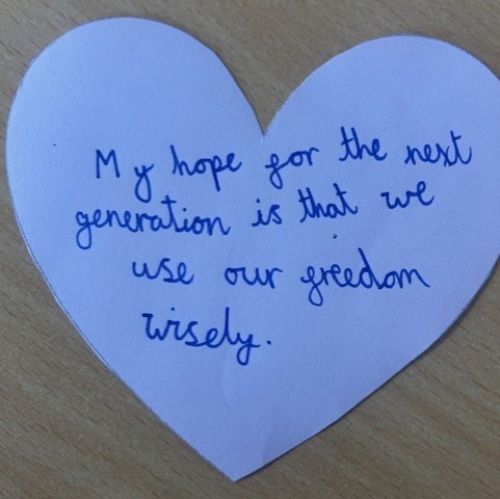 My hope for the next
generation is that we
use our freedom
wisely.